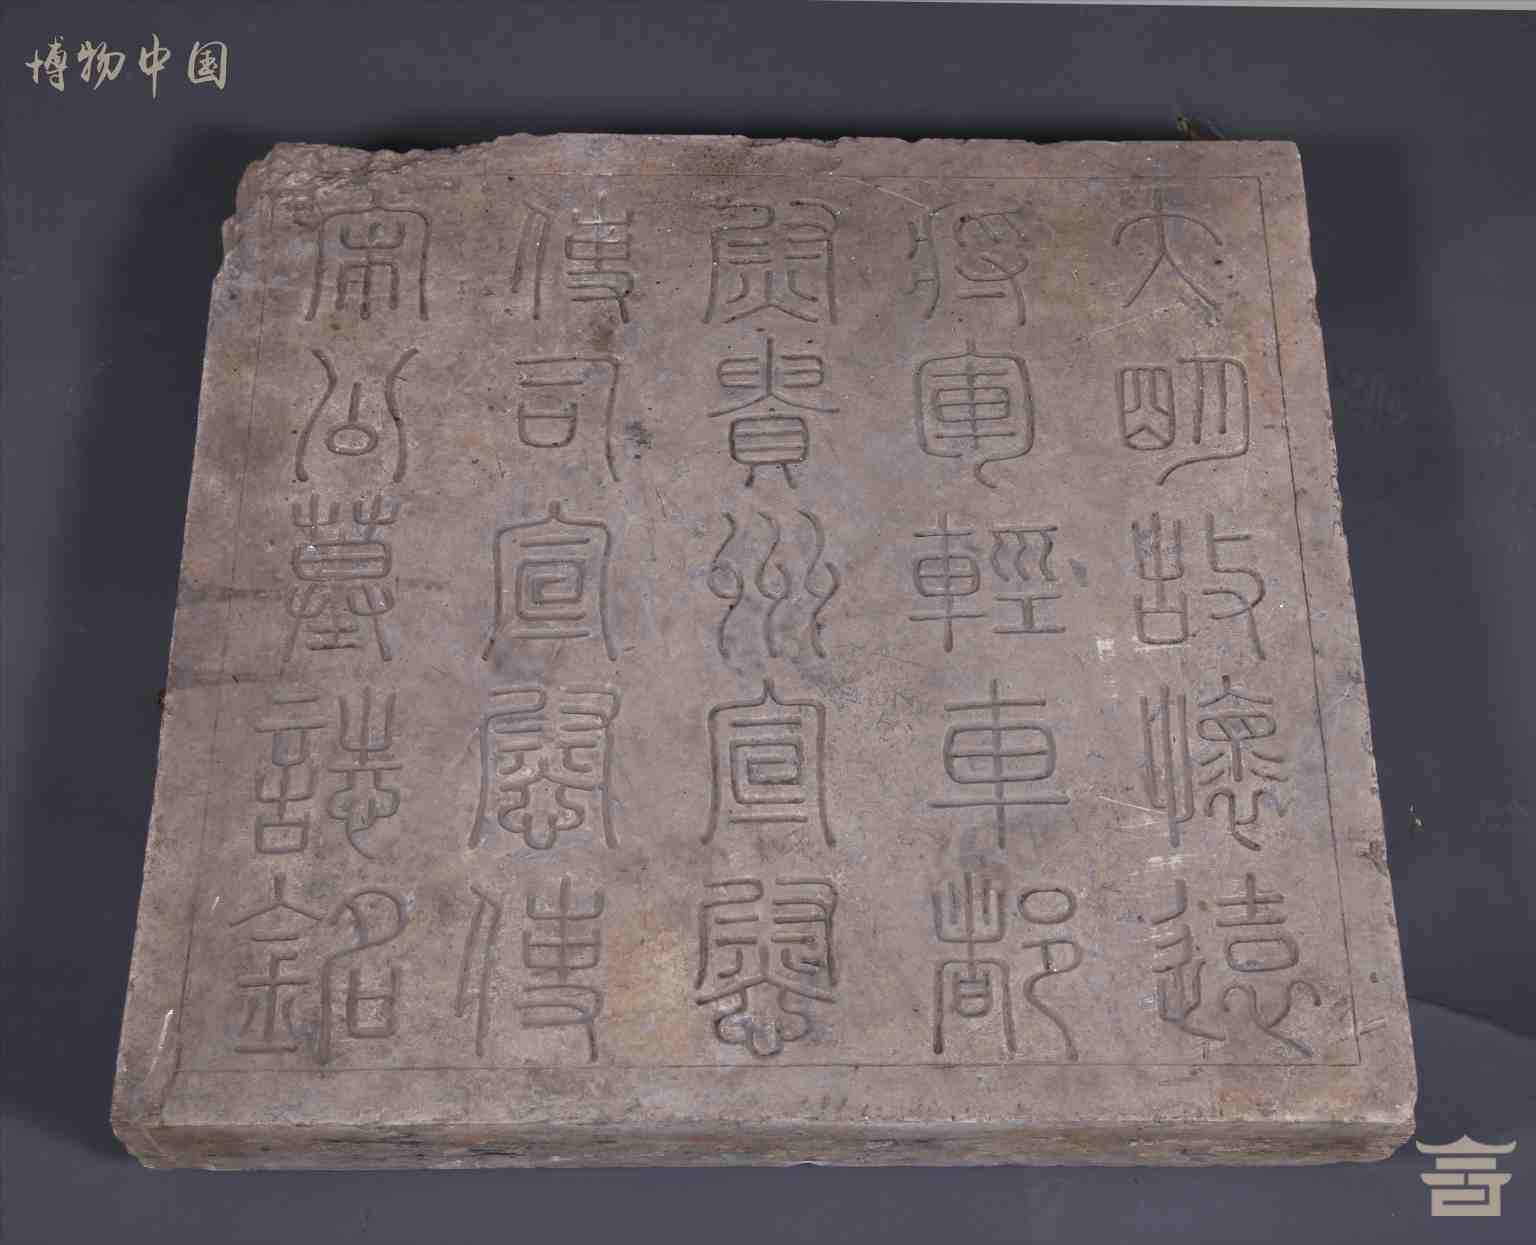 博物中国
大明故懷遠
將軍輕車都
尉貴州宣慰
使司宣慰使
宋公墓誌銘